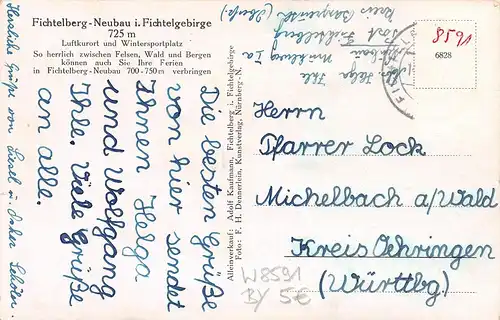 Fichtelberg-Neubau i. Fichtelgebirge
725 m
Luftkurort und Wintersportplatz
So herrlich zwischen Felsen, Wald und Bergen
können auch Sie Ihre Ferien
in Fichtelberg-Neubau 700-750 m verbringen
Die besten Grüße
von hier sendet
Ihnen Helga
und Wolfgang
Ihle. Viele Grüße
an alle.
Herzliche Grüße von Liesel u.
Alleinverkauf: Adolf Kaufmann, Fichtelberg i. Fichtelgebirge
Foto: F. H. Dennerlein, Kunstverlag, Nürnberg-N.
Helga Ihle
Neubau
Post Fichtelberg
Kreis
8591
6828
Herrn
Pfarrer Lock
Michelbach a/Wald
Kreis Oehringen
(Württbg.)
W8591
BY 5€